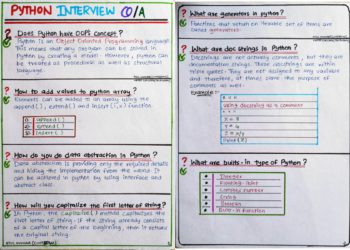 PYTHON INTERVIEW Q/A
? Does Python have OOPS Concept?
Python is an Object Oriented Programming language.
This means that any program can be solved in
Python by creating a model. However, Python can
be treated as procedural as well as structural
language.
? How to add values to python array?
Elements can be added to an array using the
append(), extend() and insert(i,x) function.
1) append()
2) extend()
3) insert()
? How do you do data abstraction in Python?
Data abstraction is providing only the required details
and hiding the implementation from the world. It
can be achieved in python by using interface and
abstract class.
? How will you capitalize the first letter of string?
In Python, the capitalize() method capitalizes
the first letter of string. If the string already consists
of a capital letter at the beginning, then it returns
the original string.
? What are generators in python?
Functions that return an iterable set of items are
called generators.
? What are doc strings in Python?
Docstrings are not actually comments, but they are
documentation strings. These docstrings are within
triple quotes. They are not assigned to any variable
and therefore, at times serve the purpose of
comments as well.
Example :-
" " "
Using docstring as a comment
" " "
x = 8
y = 4
z = x/y
print(z)
? What are built-in type of Python?
Integer
Floating-point
Complex number
String
Boolean
Built-in function